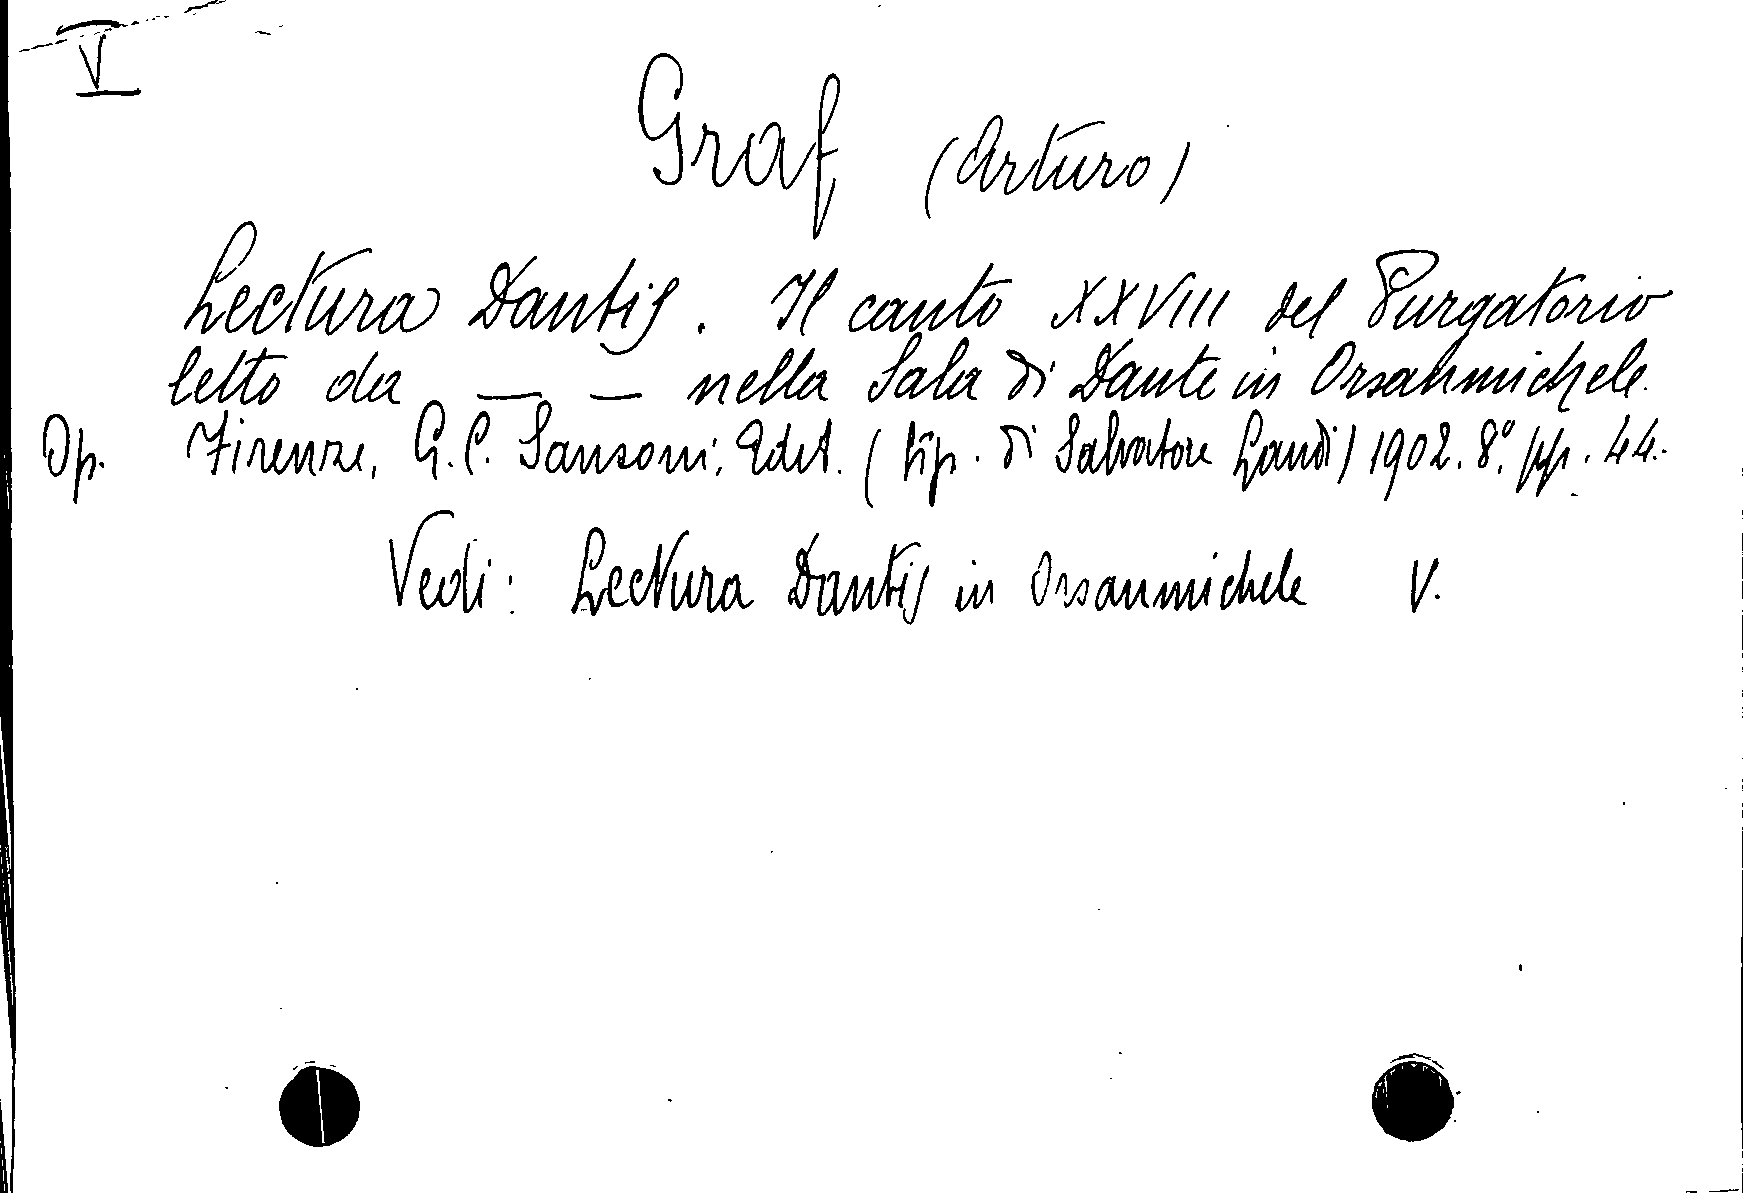 V
Graf, (Arturo)
Lectura Dantis. Il canto XXVIII del Purgatorio
letto da — — nella Sala di Dante in Orsanmichele.
Op. Firenze, G. C. Sansoni, Edit. (tip. di Salvatore Landi) 1902. 8.° pp. 44.
Vedi: Lectura Dantis in Orsanmichele V.